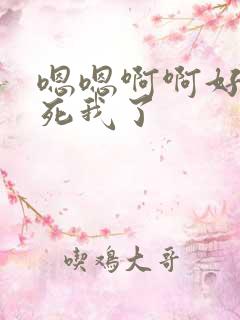 嗯嗯啊啊好
死我了
喫鴻大哥